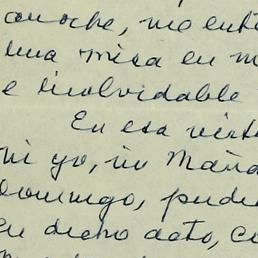 anoche, me ent
una misa en m
e inolvidable
En esa virt
ni yo, ni Maña
Domingo, pudi
en dicho acto, c